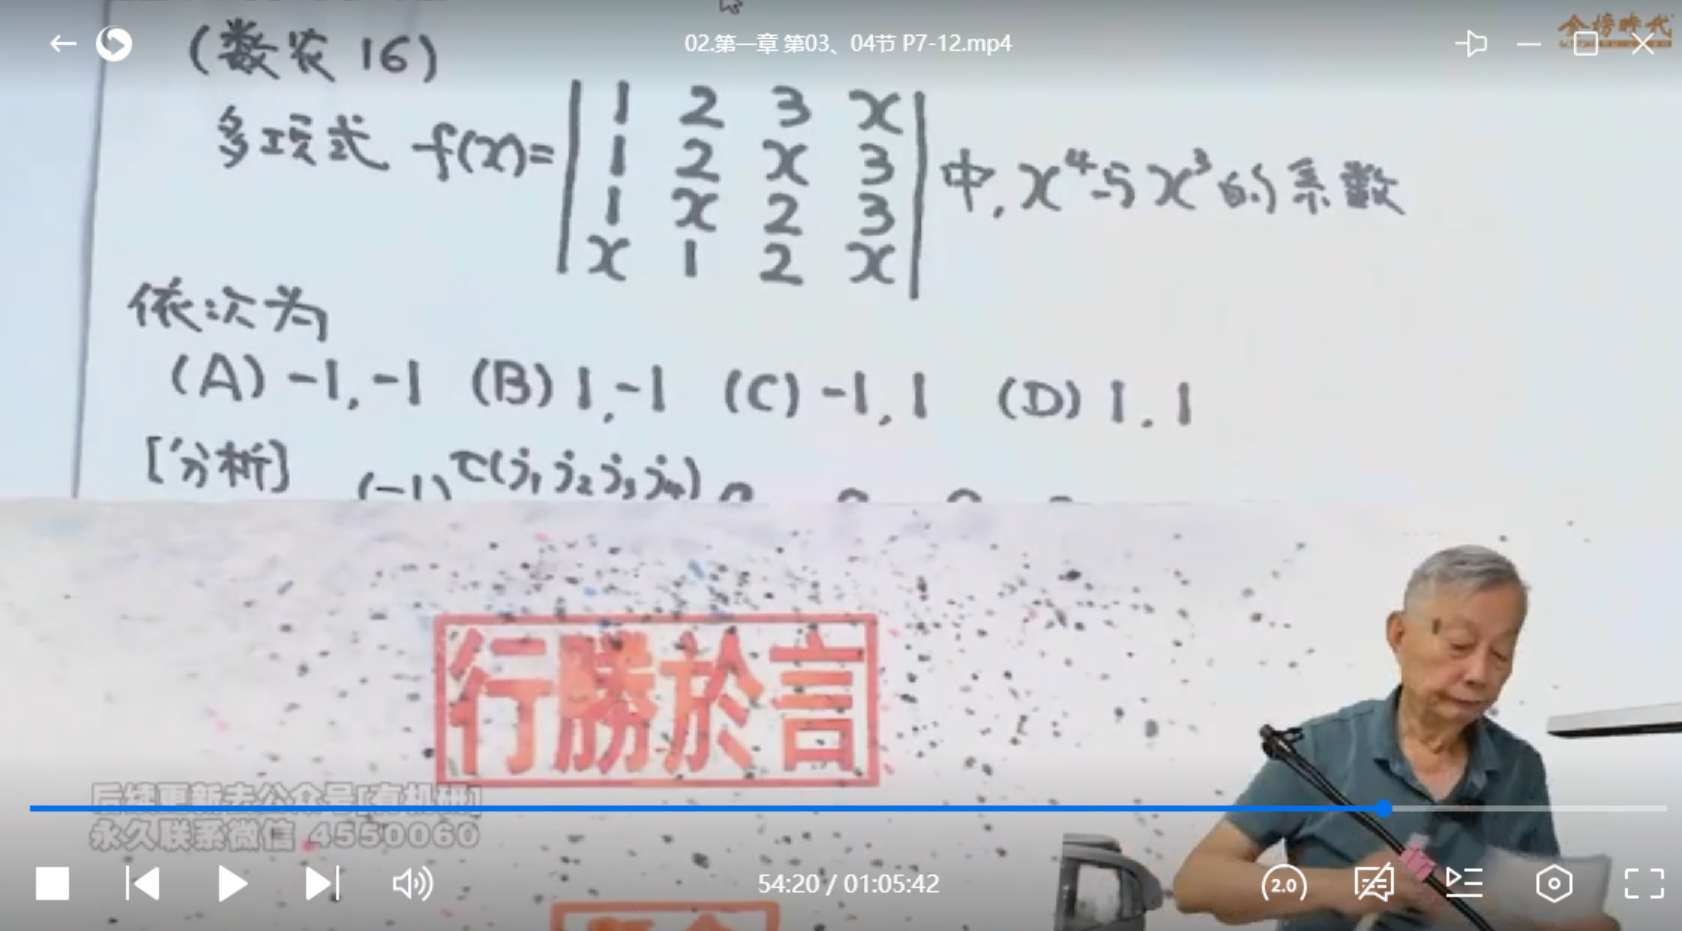 02.第一章 第03、04节 P7-12.mp4
金榜時代
(数农 16)
多项式 f(x)=
| 1 2 3 x |
| 1 2 x 3 |
| 1 x 2 3 |
| x 1 2 x |
中, x⁴与x³的系数
依次为
(A) -1, -1 (B) 1, -1 (C) -1, 1 (D) 1, 1
[分析] (-1)^τ(j₁j₂j₃j₄)
行勝於言
后续更新去公众号[有机研]
永久联系微信 4550060
54:20 / 01:05:42
2.0